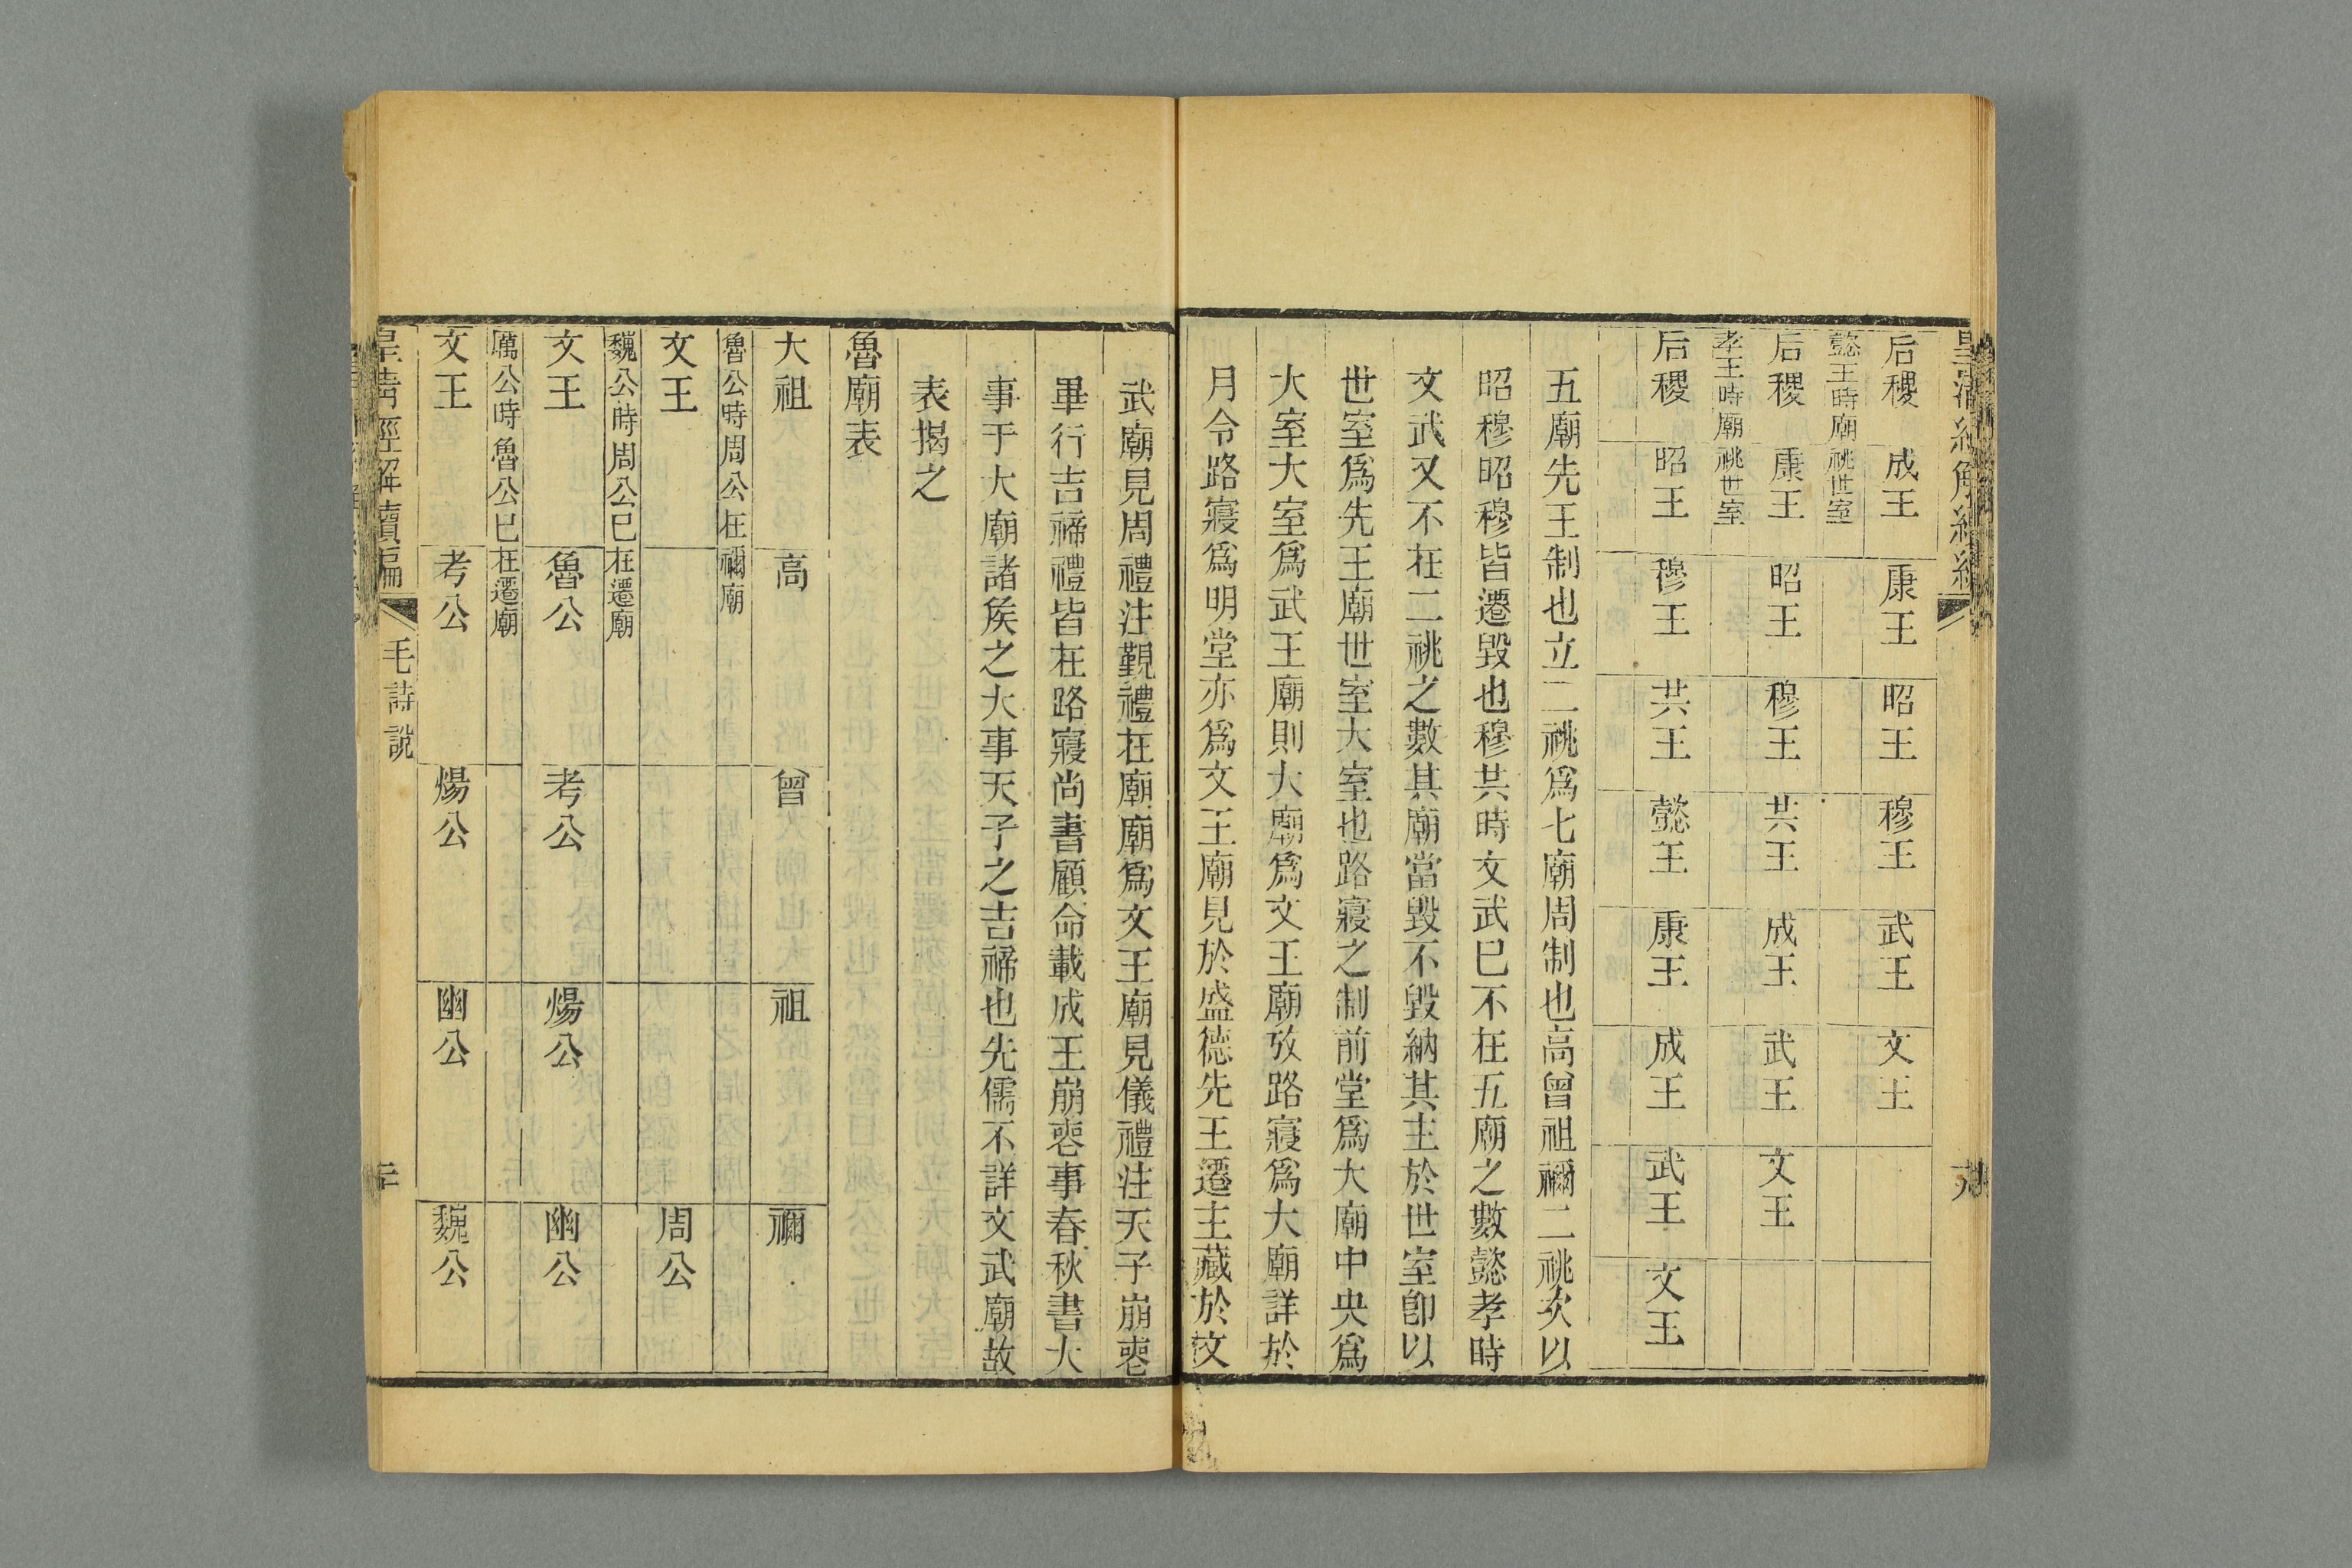 后稷 成王 康王 昭王 穆王 武王 文王
懿王時廟祧世室
后稷 康王 昭王 穆王 共王 成王 武王 文王
孝王時廟祧世室
后稷 昭王 穆王 共王 懿王 康王 成王 武王 文王
五廟先王制也立二祧爲七廟周制也高曾祖禰二祧次以
昭穆昭穆皆遷毀也穆共時文武已不在五廟之數懿孝時
文武又不在二祧之數其廟當毀不毀納其主於世室卽以
世室爲先王廟世室大室也路寢之制前堂爲大廟中央爲
大室大室爲武王廟則大廟爲文王廟攷路寢爲大廟詳於
月令路寢爲明堂亦爲文王廟見於盛德先王遷主藏於文
武廟見周禮注覲禮在廟廟爲文王廟見儀禮注天子崩喪
畢行吉禘禮皆在路寢尚書顧命載成王崩喪事春秋書大
事于大廟諸矦之大事天子之吉禘也先儒不詳文武廟故
表揭之
魯廟表
大祖 高 曾 祖 禰
魯公時周公在禰廟
文王 周公
魏公時周公已在遷廟
文王 魯公 考公 煬公 幽公
厲公時魯公已在遷廟
文王 考公 煬公 幽公 魏公
皇清經解續編 毛詩說